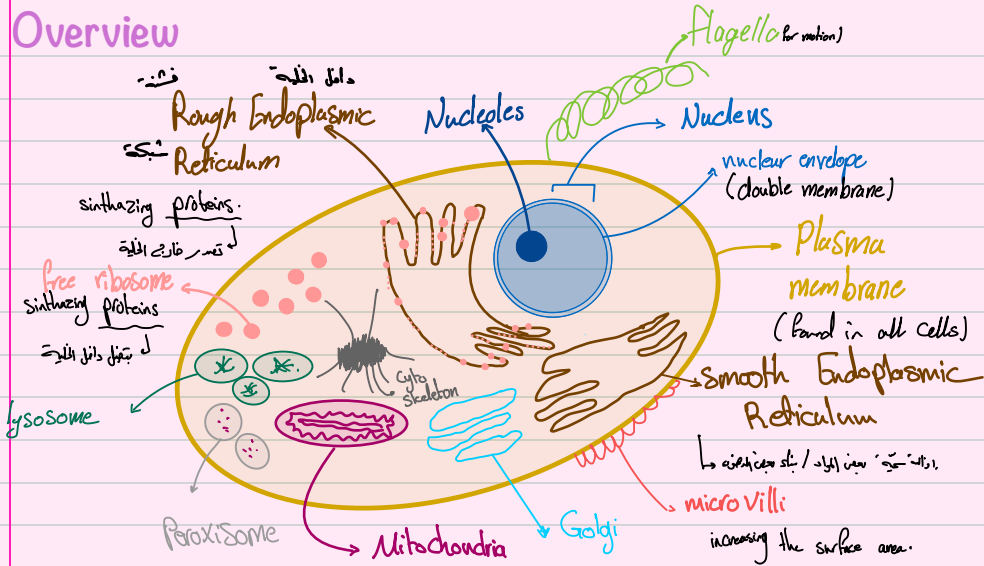 Overview
Flagella (for motion)
خشنة
داخل الخلية
Rough Endoplasmic
شبكة
Reticulum
sinthazing proteins.
تصدر خارج الخلية
free ribosome
sinthazing proteins
داخل الخلية
lysosome
Peroxisome
Mitochondria
Golgi
cyto
skeleton
Nucleoles
Nucleus
nuclear envelope
(double membrane)
Plasma
membrane
(found in all cells)
smooth Endoplasmic
Reticulum
microvilli
increasing the surface area.